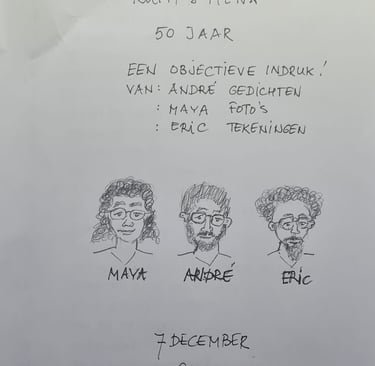 50 JAAR
EEN OBJECTIEVE INDRUK!
VAN: ANDRÉ GEDICHTEN
: MAYA FOTO'S
: ERIC TEKENINGEN
MAYA ANDRÉ ERIC
7 DECEMBER